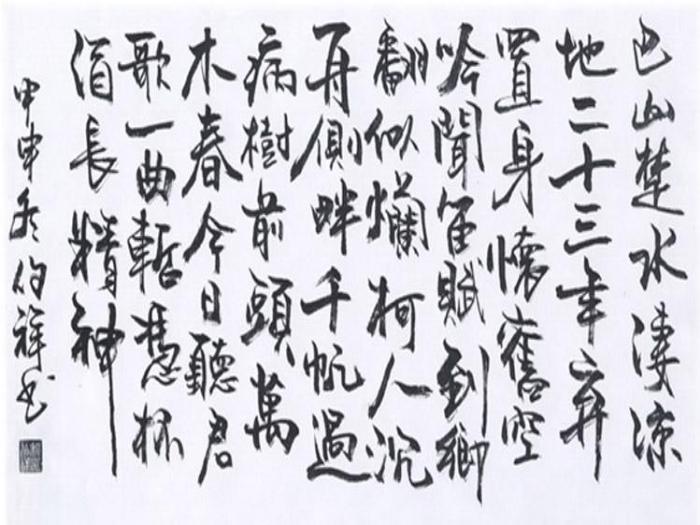 巴山楚水淒涼
地二十三年弃
置身懷舊空
吟聞笛賦到鄉
翻似爛柯人沉
舟側畔千帆過
病樹前頭萬
木春今日聽君
歌一曲暫憑杯
酒長精神
甲申冬伯祥书